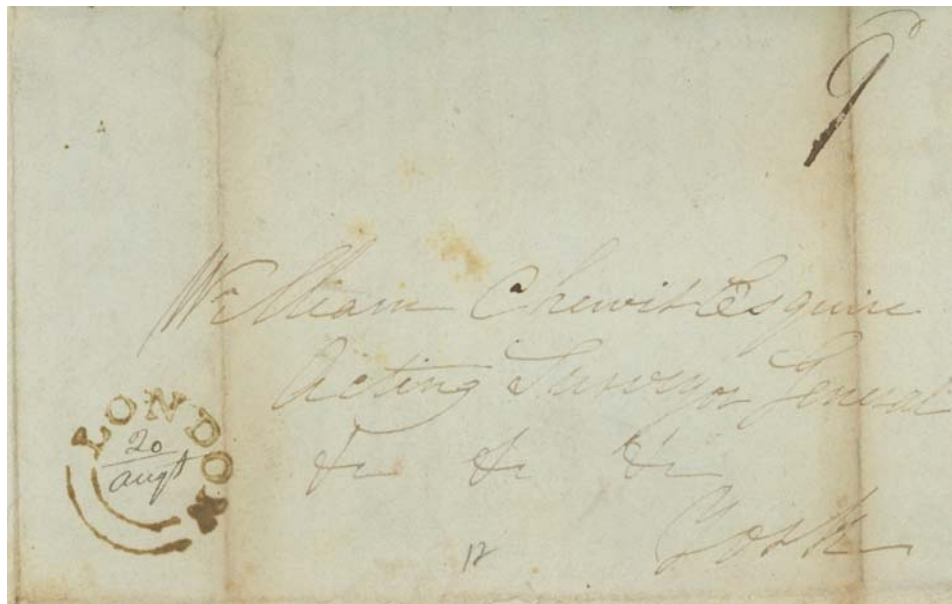 9
William Chewit Esquire
Acting Surveyor General
&c &c &c
York
LONDON
20
augt
12